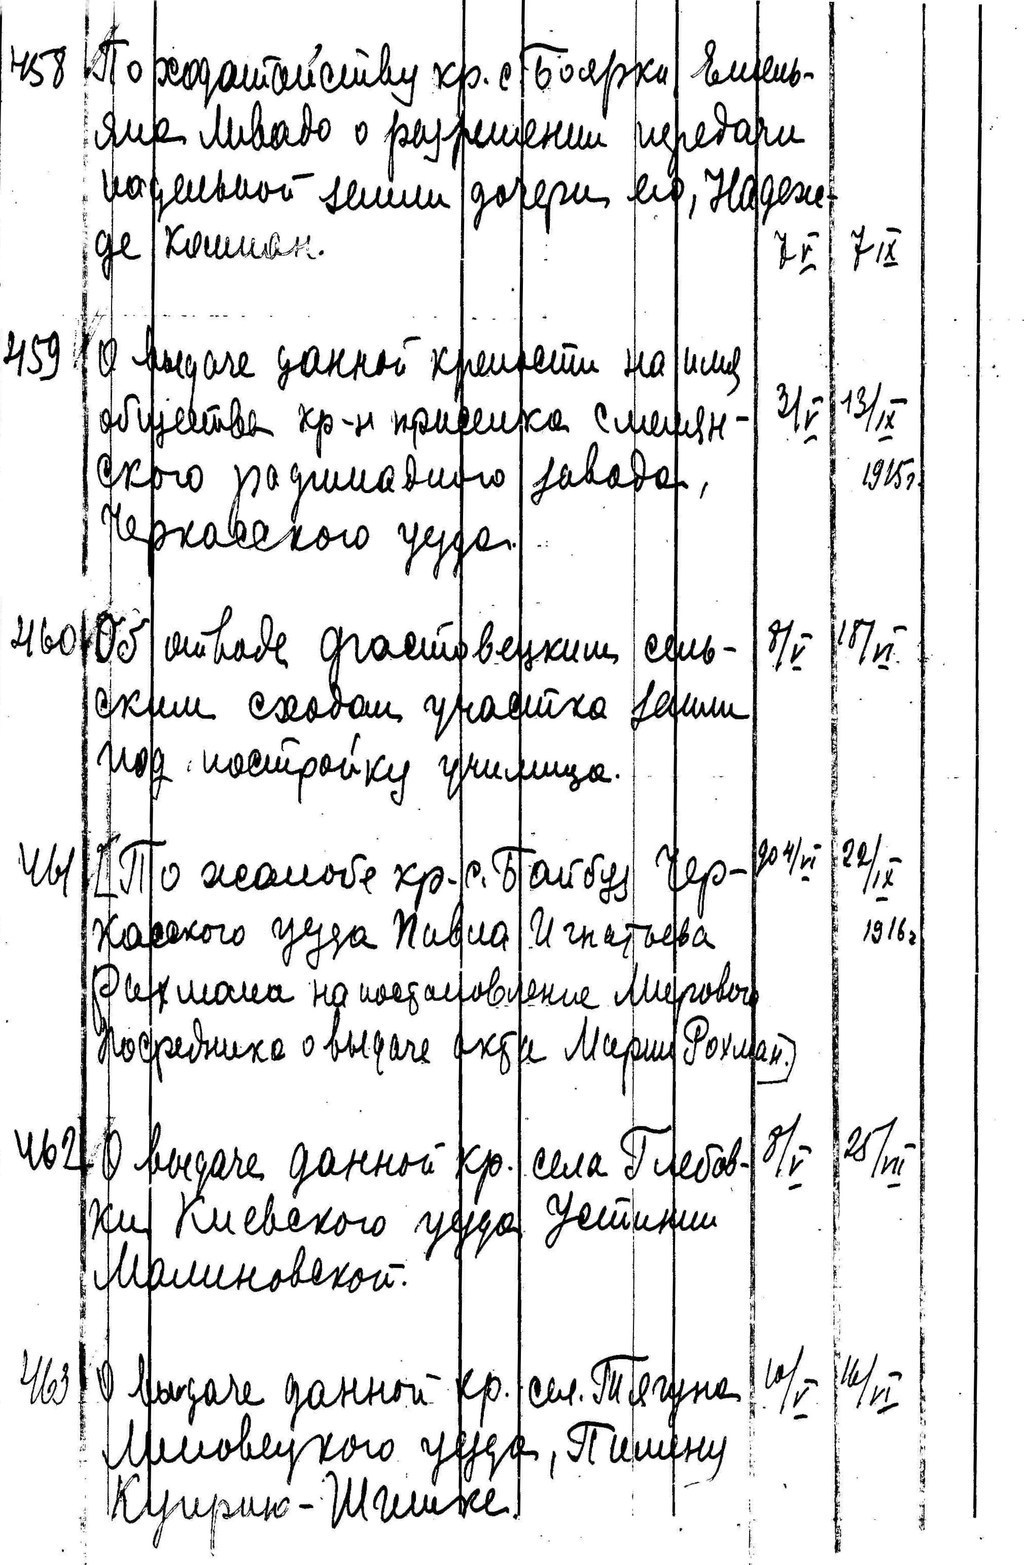 458 По ходатайству кр. с. Боярки Емель-
яна Ливадо о разрешении передачи
надельной земли дочери его, Надеж-
де Кошман. 7/V 7/IX
459 О выдаче данной крепости на имя
общества кр-н приселка Смелян- 3/V 13/IX
ского завода, 1915г.
Черкасского уезда.
460 Об отводе сель- 8/V 18/VI
ским сходом участка земли
под постройку училища.
461 [По жалобе кр. с. Байбуз Чер- 4/VI 22/IX
касского уезда Павла Игнатьева 1916г
Рахмана на постановление Мирового
Посредника о выдаче акта Марии Рохман.]
462 О выдаче данной кр. села Глебов- 8/V 25/VII
ки Киевского уезда Устинии
Малиновской.
463 О выдаче данной кр. сел. Тягуна 10/V 16/VI
Липовецкого уезда, Пимену
Шишке.